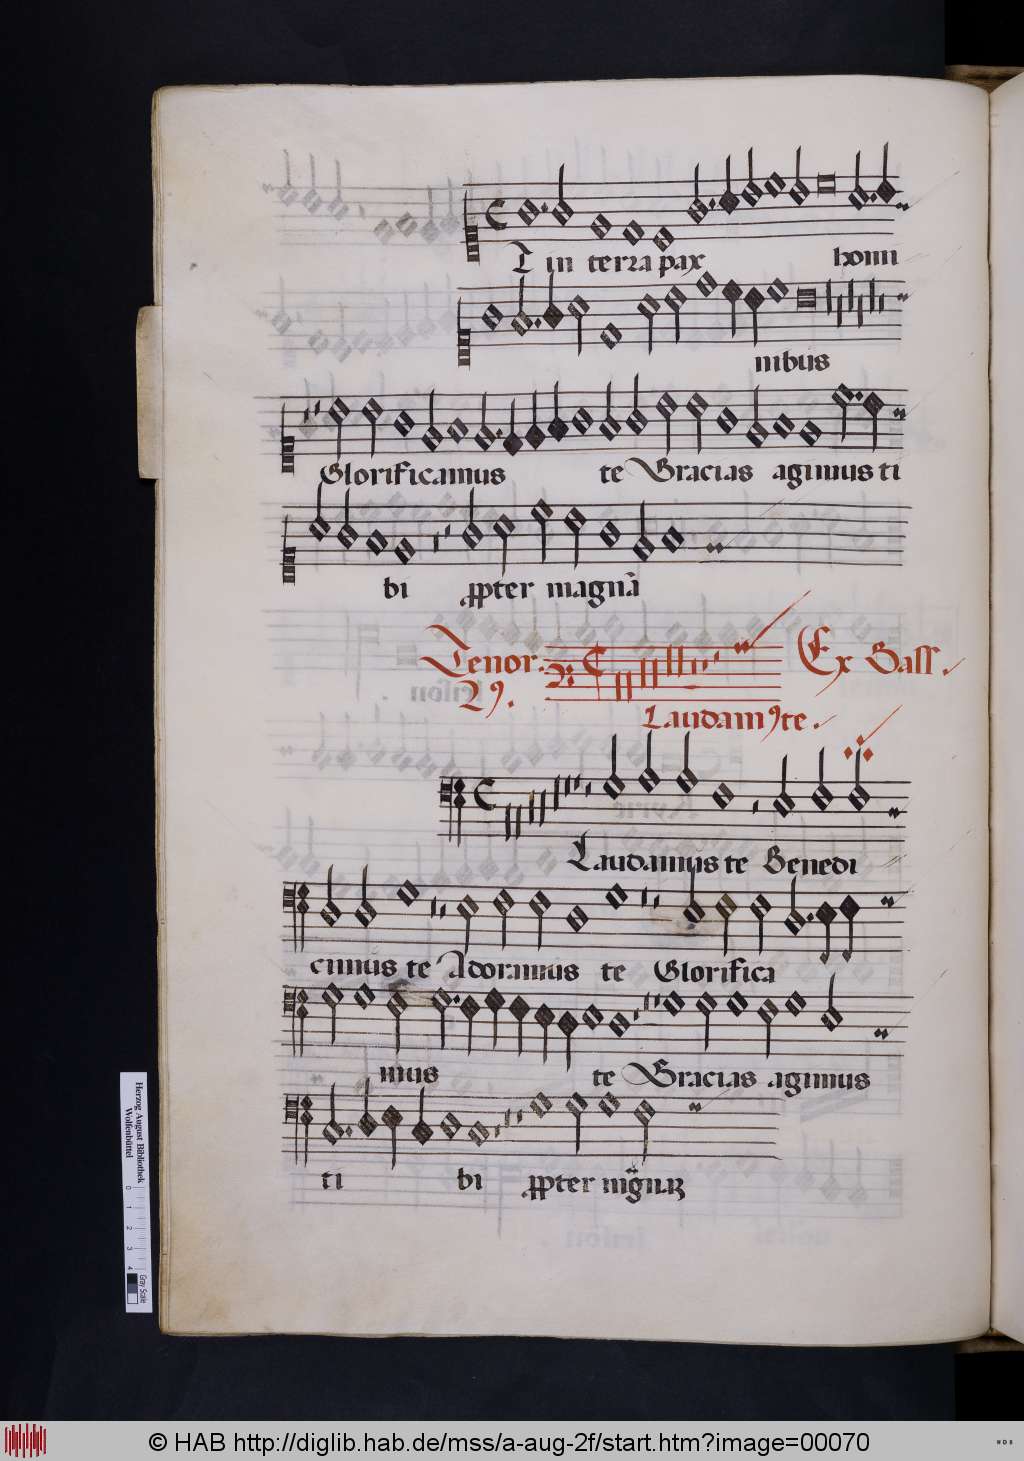 T in terra pax homi
nibus
Glorificamus te Gracias agimus ti
bi ꝓpter magnā
Tenor. Ex Bass.
2ꝰ.
Laudamꝰ te.
Laudamus te Benedi
cimus te Adoramus te Glorifica
mus te Gracias agimus
ti bi ꝓpter
Herzog August Bibliothek
Wolfenbüttel
0 1 2 3 4
Gray Scale
© HAB http://diglib.hab.de/mss/a-aug-2f/start.htm?image=00070